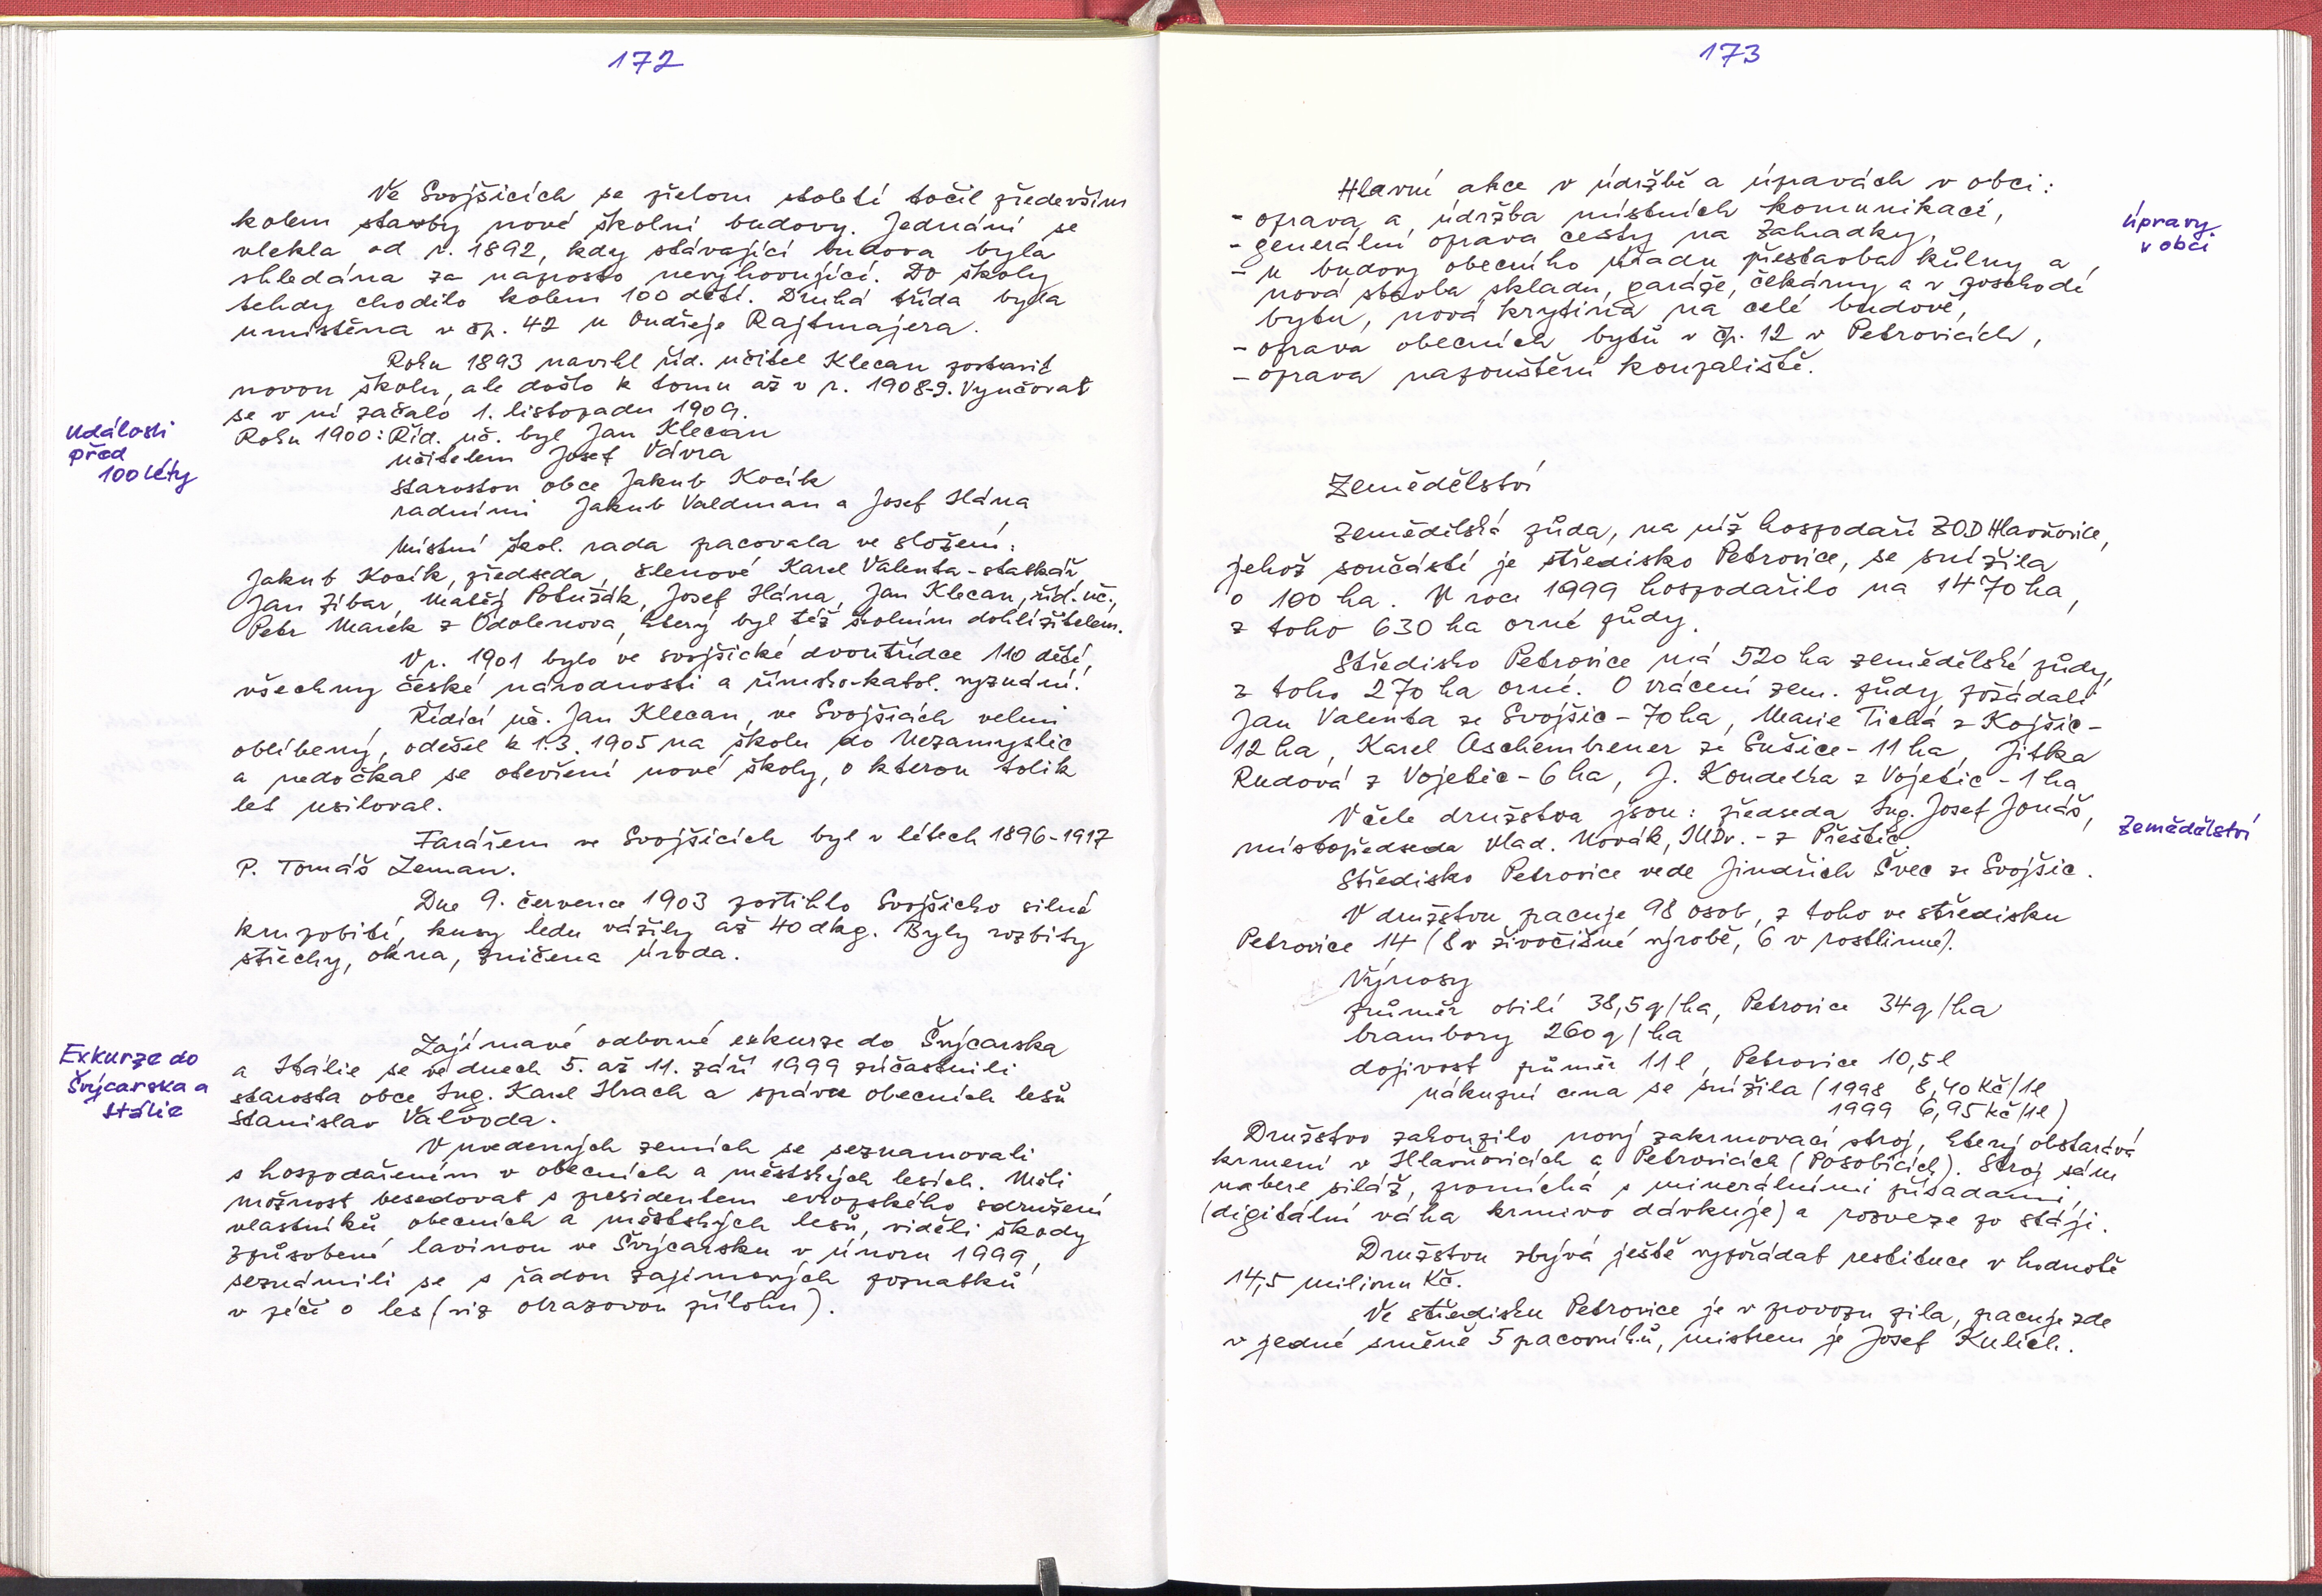 172
Ve Svojšicích se přelom století točil především
kolem stavby nové školní budovy. Jednání se
vlekla od r. 1892, kdy stávající budova byla
shledána za naprosto nevyhovující. Do školy
tehdy chodilo kolem 100 dětí. Druhá třída byla
umístěna v čp. 42 u Ondřeje Rajtmajera.
Roku 1893 navrhl říd. učitel Klecan postavit
novou školu, ale došlo k tomu až v r. 1908-9. Vyučovat
se v ní začalo 1. listopadu 1909.
Události
před
100 léty
Roku 1900: Říd. uč. byl Jan Klecan
učitelem Josef Vávra
starostou obce Jakub Kocík
radními Jakub Valdman a Josef Hána
Místní škol. rada pracovala ve složení:
Jakub Kocík, předseda, členové Karel Valenta - statkář,
Jan Zíbar, Matěj Potužák, Josef Hána, Jan Klecan, říd. uč.,
Petr Marek z Odolenova, který byl též školním dohlížitelem.
V r. 1901 bylo ve svojšické dvoutřídce 110 dětí,
všechny české národnosti a římsko-katol. vyznání.
Řídící uč. Jan Klecan, ve Svojšicích velmi
oblíbený, odešel k 1.3. 1905 na školu do Nezamyslic
a nedočkal se otevření nové školy, o kterou tolik
let usiloval.
Farářem ve Svojšicích byl v létech 1896-1917
P. Tomáš Zeman.
Dne 9. července 1903 postihlo Svojšicko silné
krupobití, kusy ledu vážily až 40 dkg. Byly rozbity
střechy, okna, zničena úroda.
Exkurze do
Švýcarska a
Itálie
Zajímavé odborné exkurze do Švýcarska
a Itálie se ve dnech 5. až 11. září 1999 zúčastnili
starosta obce Ing. Karel Hrach a správce obecních lesů
Stanislav Valvoda.
V uvedených zemích se seznamovali
s hospodařením v obecních a městských lesích. Měli
možnost besedovat s presidentem evropského sdružení
vlastníků obecních a městských lesů, viděli škody
způsobené lavinou ve Švýcarsku v únoru 1999,
seznámili se s řadou zajímavých poznatků
v péči o les (viz obrazovou přílohu).
173
Hlavní akce v údržbě a úpravách v obci:
- oprava a údržba místních komunikací,
- generální oprava cesty na Zahrádky,
- u budovy obecního úřadu přestavba kůlny a
nová stavba skladu, garáže, čekárny a v poschodí
bytu, nová krytina na celé budově,
- oprava obecních bytů v čp. 12 v Petrovicích,
- oprava napouštění koupaliště.
Úpravy
v obci
Zemědělství
Zemědělská půda, na níž hospodaří ZOD Hlavňovice,
jehož součástí je středisko Petrovice, se snížila
o 100 ha. V roce 1999 hospodařilo na 1470 ha,
z toho 630 ha orné půdy.
Středisko Petrovice má 520 ha zemědělské půdy,
z toho 270 ha orné. O vrácení zem. půdy požádali
Jan Valenta ze Svojšic - 70 ha, Marie Tichá z Kojšic -
12 ha, Karel Aschenbrener ze Sušice - 11 ha, Jitka
Rudová z Vojetic - 6 ha, J. Koudelka z Vojetic - 1 ha
V čele družstva jsou: předseda Ing. Josef Jonáš,
místopředseda Vlad. Novák, JUDr. - z Přeštic.
Zemědělství
Středisko Petrovice vede Jindřich Švec ze Svojšic.
V družstvu pracuje 98 osob, z toho ve středisku
Petrovice 14 (8 v živočišné výrobě, 6 v rostlinné).
Výnosy
průměr obilí 38,5 q/ha, Petrovice 34 q/ha
brambory 260 q/ha
dojivost průměr 11 l, Petrovice 10,5 l
nákupní cena se snížila (1998 8,40 Kč/1l
1999 6,95 Kč/1l)
Družstvo zakoupilo nový zakrmovací stroj, který obstarává
krmení v Hlavňovicích a Petrovicích (Posobicích). Stroj sám
nabere siláž, promíchá s minerálními přísadami,
(digitální váha krmivo dávkuje) a rozveze po stáji.
Družstvu zbývá ještě vypořádat restituce v hodnotě
14,5 milionu Kč.
Ve středisku Petrovice je v provozu pila, pracuje zde
v jedné směně 5 pracovníků, mistrem je Josef Kulich.